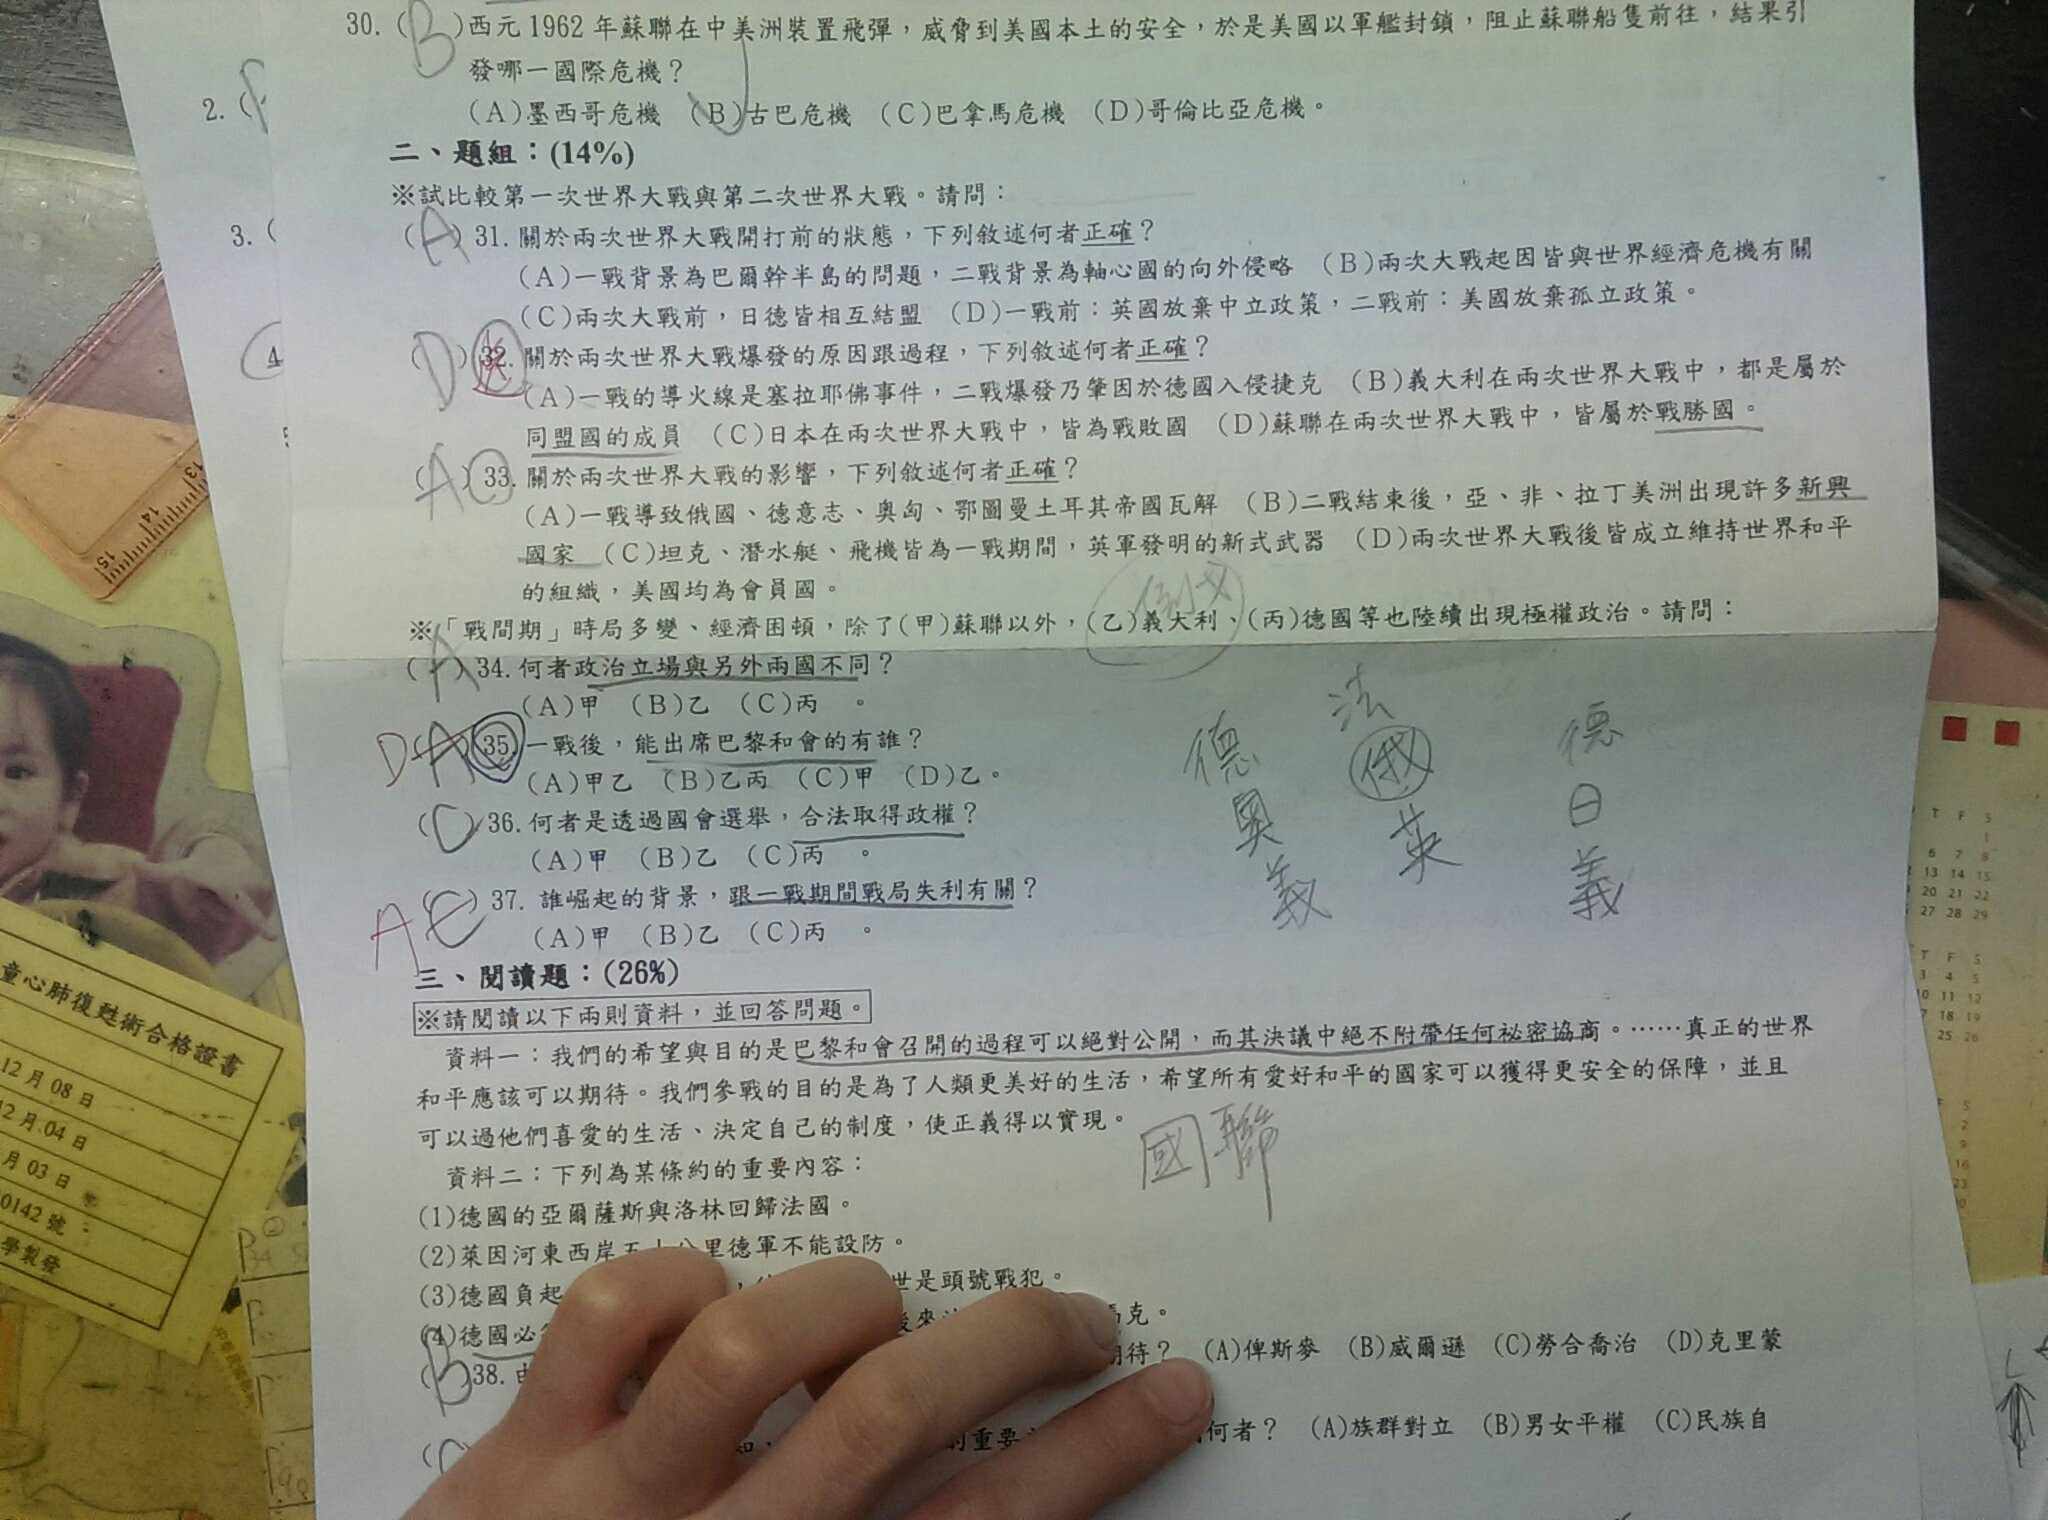 30. (B)西元1962年蘇聯在中美洲裝置飛彈，威脅到美國本土的安全，於是美國以軍艦封鎖，阻止蘇聯船隻前往，結果引
發哪一國際危機？
(A)墨西哥危機 (B)古巴危機 (C)巴拿馬危機 (D)哥倫比亞危機。
二、題組：(14%)
※試比較第一次世界大戰與第二次世界大戰。請問：
(A) 31. 關於兩次世界大戰開打前的狀態，下列敘述何者正確？
(A)一戰背景為巴爾幹半島的問題，二戰背景為軸心國的向外侵略 (B)兩次大戰起因皆與世界經濟危機有關
(C)兩次大戰前，日德皆相互結盟 (D)一戰前：英國放棄中立政策，二戰前：美國放棄孤立政策。
(D) 32. 關於兩次世界大戰爆發的原因跟過程，下列敘述何者正確？
(A)一戰的導火線是塞拉耶佛事件，二戰爆發乃肇因於德國入侵捷克 (B)義大利在兩次世界大戰中，都是屬於
同盟國的成員 (C)日本在兩次世界大戰中，皆為戰敗國 (D)蘇聯在兩次世界大戰中，皆屬於戰勝國。
(A) 33. 關於兩次世界大戰的影響，下列敘述何者正確？
(A)一戰導致俄國、德意志、奧匈、鄂圖曼土耳其帝國瓦解 (B)二戰結束後，亞、非、拉丁美洲出現許多新興
國家 (C)坦克、潛水艇、飛機皆為一戰期間，英軍發明的新式武器 (D)兩次世界大戰後皆成立維持世界和平
的組織，美國均為會員國。
倒戈
※「戰間期」時局多變、經濟困頓，除了(甲)蘇聯以外，(乙)義大利、(丙)德國等也陸續出現極權政治。請問：
(A) 34. 何者政治立場與另外兩國不同？
(A)甲 (B)乙 (C)丙 。
D (A) 35. 一戰後，能出席巴黎和會的有誰？
(A)甲乙 (B)乙丙 (C)甲 (D)乙。
( ) 36. 何者是透過國會選舉，合法取得政權？
(A)甲 (B)乙 (C)丙 。
A (C) 37. 誰崛起的背景，跟一戰期間戰局失利有關？
(A)甲 (B)乙 (C)丙 。
德 奧 義
法 俄 英
德 日 義
三、閱讀題：(26%)
※請閱讀以下兩則資料，並回答問題。
資料一：我們的希望與目的是巴黎和會召開的過程可以絕對公開，而其決議中絕不附帶任何祕密協商。……真正的世界
和平應該可以期待。我們參戰的目的是為了人類更美好的生活，希望所有愛好和平的國家可以獲得更安全的保障，並且
可以過他們喜愛的生活、決定自己的制度，使正義得以實現。
國聯
資料二：下列為某條約的重要內容：
(1)德國的亞爾薩斯與洛林回歸法國。
(2)萊因河東西岸五十公里德軍不能設防。
(3)德國負起 世是頭號戰犯。
(4)德國必 後來 馬克。
(B)38. 由 期待？ (A)俾斯麥 (B)威爾遜 (C)勞合喬治 (D)克里蒙
知， 的重要 何者？ (A)族群對立 (B)男女平權 (C)民族自
2. (
3. (
4
童心肺復甦術合格證書
12月08日
12月04日
月03日
0142號
學製發
13
14
15
T F S
1
6 7 8
13 14 15
20 21 22
27 28 29
T F S
3 4 5
10 11 12
17 18 19
25 26